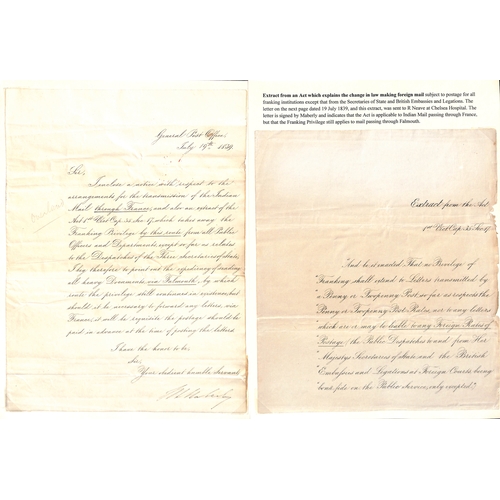 General Post Office,
July 19th 1839.
Sir,
I enclose a notice with respect to the
arrangements for the transmission of the Indian
Mail through France, and also an extract of the
Act 1st Vict Cap: 35. Sec: 17, which takes away the
Franking Privilege by this route from all Public
Officers and Departments, except so far as relates
to the Despatches of the Three Secretaries of State,
I beg therefore to point out the expediency of sending
all heavy Documents via Falmouth, by which
route the privilege still continues in existence, but
should it be necessary to forward any letters, via
France, it will be requisite the postage should be
paid in advance at the time of posting the letters.
I have the honor to be,
Sir,
Your obedient humble Servant
Extract from an Act which explains the change in law making foreign mail subject to postage for all
franking institutions except that from the Secretaries of State and British Embassies and Legations. The
letter on the next page dated 19 July 1839, and this extract, was sent to R Neave at Chelsea Hospital. The
letter is signed by Maberly and indicates that the Act is applicable to Indian Mail passing through France,
but that the Franking Privilege still applies to mail passing through Falmouth.
Extract from the Act
1st Vict Cap: 35 Sec 17
And be it enacted That no Privilege of
"Franking shall extend to Letters transmitted by
"a Penny or Twopenny Post so far as respects the
"Penny or Twopenny Post Rates, nor to any letters
"which are or may be liable to any Foreign Rates of
"Postage, the Public Despatches to and from Her
"Majestys Secretaries of State and the British
"Embassies and Legations at Foreign Courts being
"bona fide on the Public Service, only excepted."